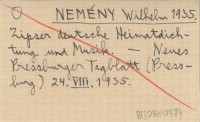 O NEMÉNY Wilhelm 1935.
Zipser deutsche Heimatdich-
tung und Musik. — Neues
Pressburger Tagblatt (Press-
burg) 24. VIII. 1935.